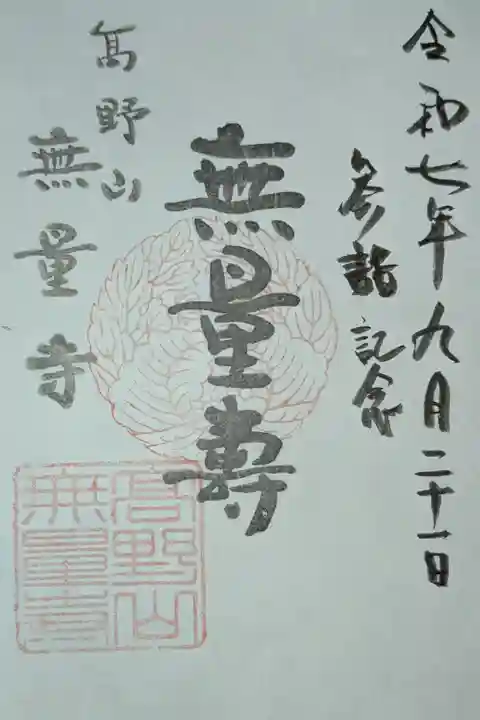 令和七年九月二十一日
参詣記念
無量壽
髙野山
無量寺
高野山
無量壽